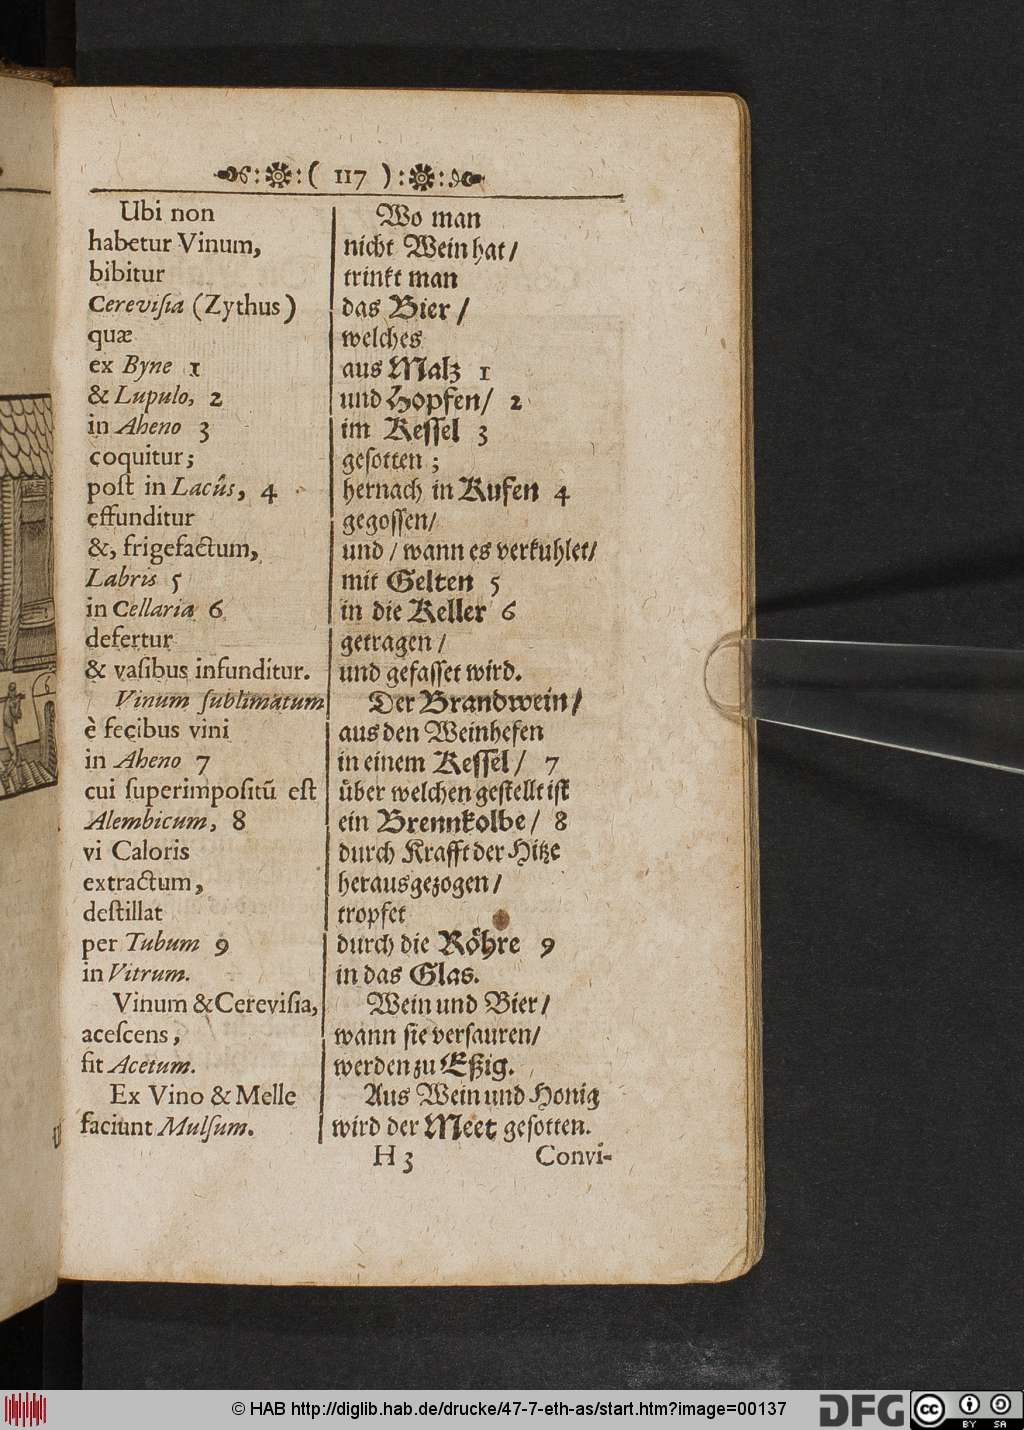 ( 117 )
Ubi non
habetur Vinum,
bibitur
Cereviſia (Zythus)
quæ
ex Byne 1
& Lupulo, 2
in Aheno 3
coquitur;
poſt in Lacûs, 4
effunditur
&, frigefactum,
Labris 5
in Cellaria 6
defertur
& vaſibus infunditur.
Vinum ſublimatum
è fecibus vini
in Aheno 7
cui ſuperimpoſitũ eſt
Alembicum, 8
vi Caloris
extractum,
deſtillat
per Tubum 9
in Vitrum.
Vinum & Cereviſia,
aceſcens,
fit Acetum.
Ex Vino & Melle
faciunt Mulſum.
Wo man
nicht Wein hat/
trinkt man
das Bier/
welches
aus Malz 1
und Hopfen/ 2
im Keſſel 3
geſotten;
hernach in Kufen 4
gegoſſen/
und/ wann es verkuhlet/
mit Gelten 5
in die Keller 6
getragen/
und gefaſſet wird.
Der Brandwein/
aus den Weinhefen
in einem Keſſel/ 7
uͤber welchen geſtellt iſt
ein Brennkolbe/ 8
durch Krafft der Hitze
herausgezogen/
tropfet
durch die Roͤhre 9
in das Glas.
Wein und Bier/
wann ſie verſauren/
werden zu Eßig.
Aus Wein und Honig
wird der Meet geſotten.
H 3 Convi-
© HAB http://diglib.hab.de/drucke/47-7-eth-as/start.htm?image=00137
DFG
cc BY SA